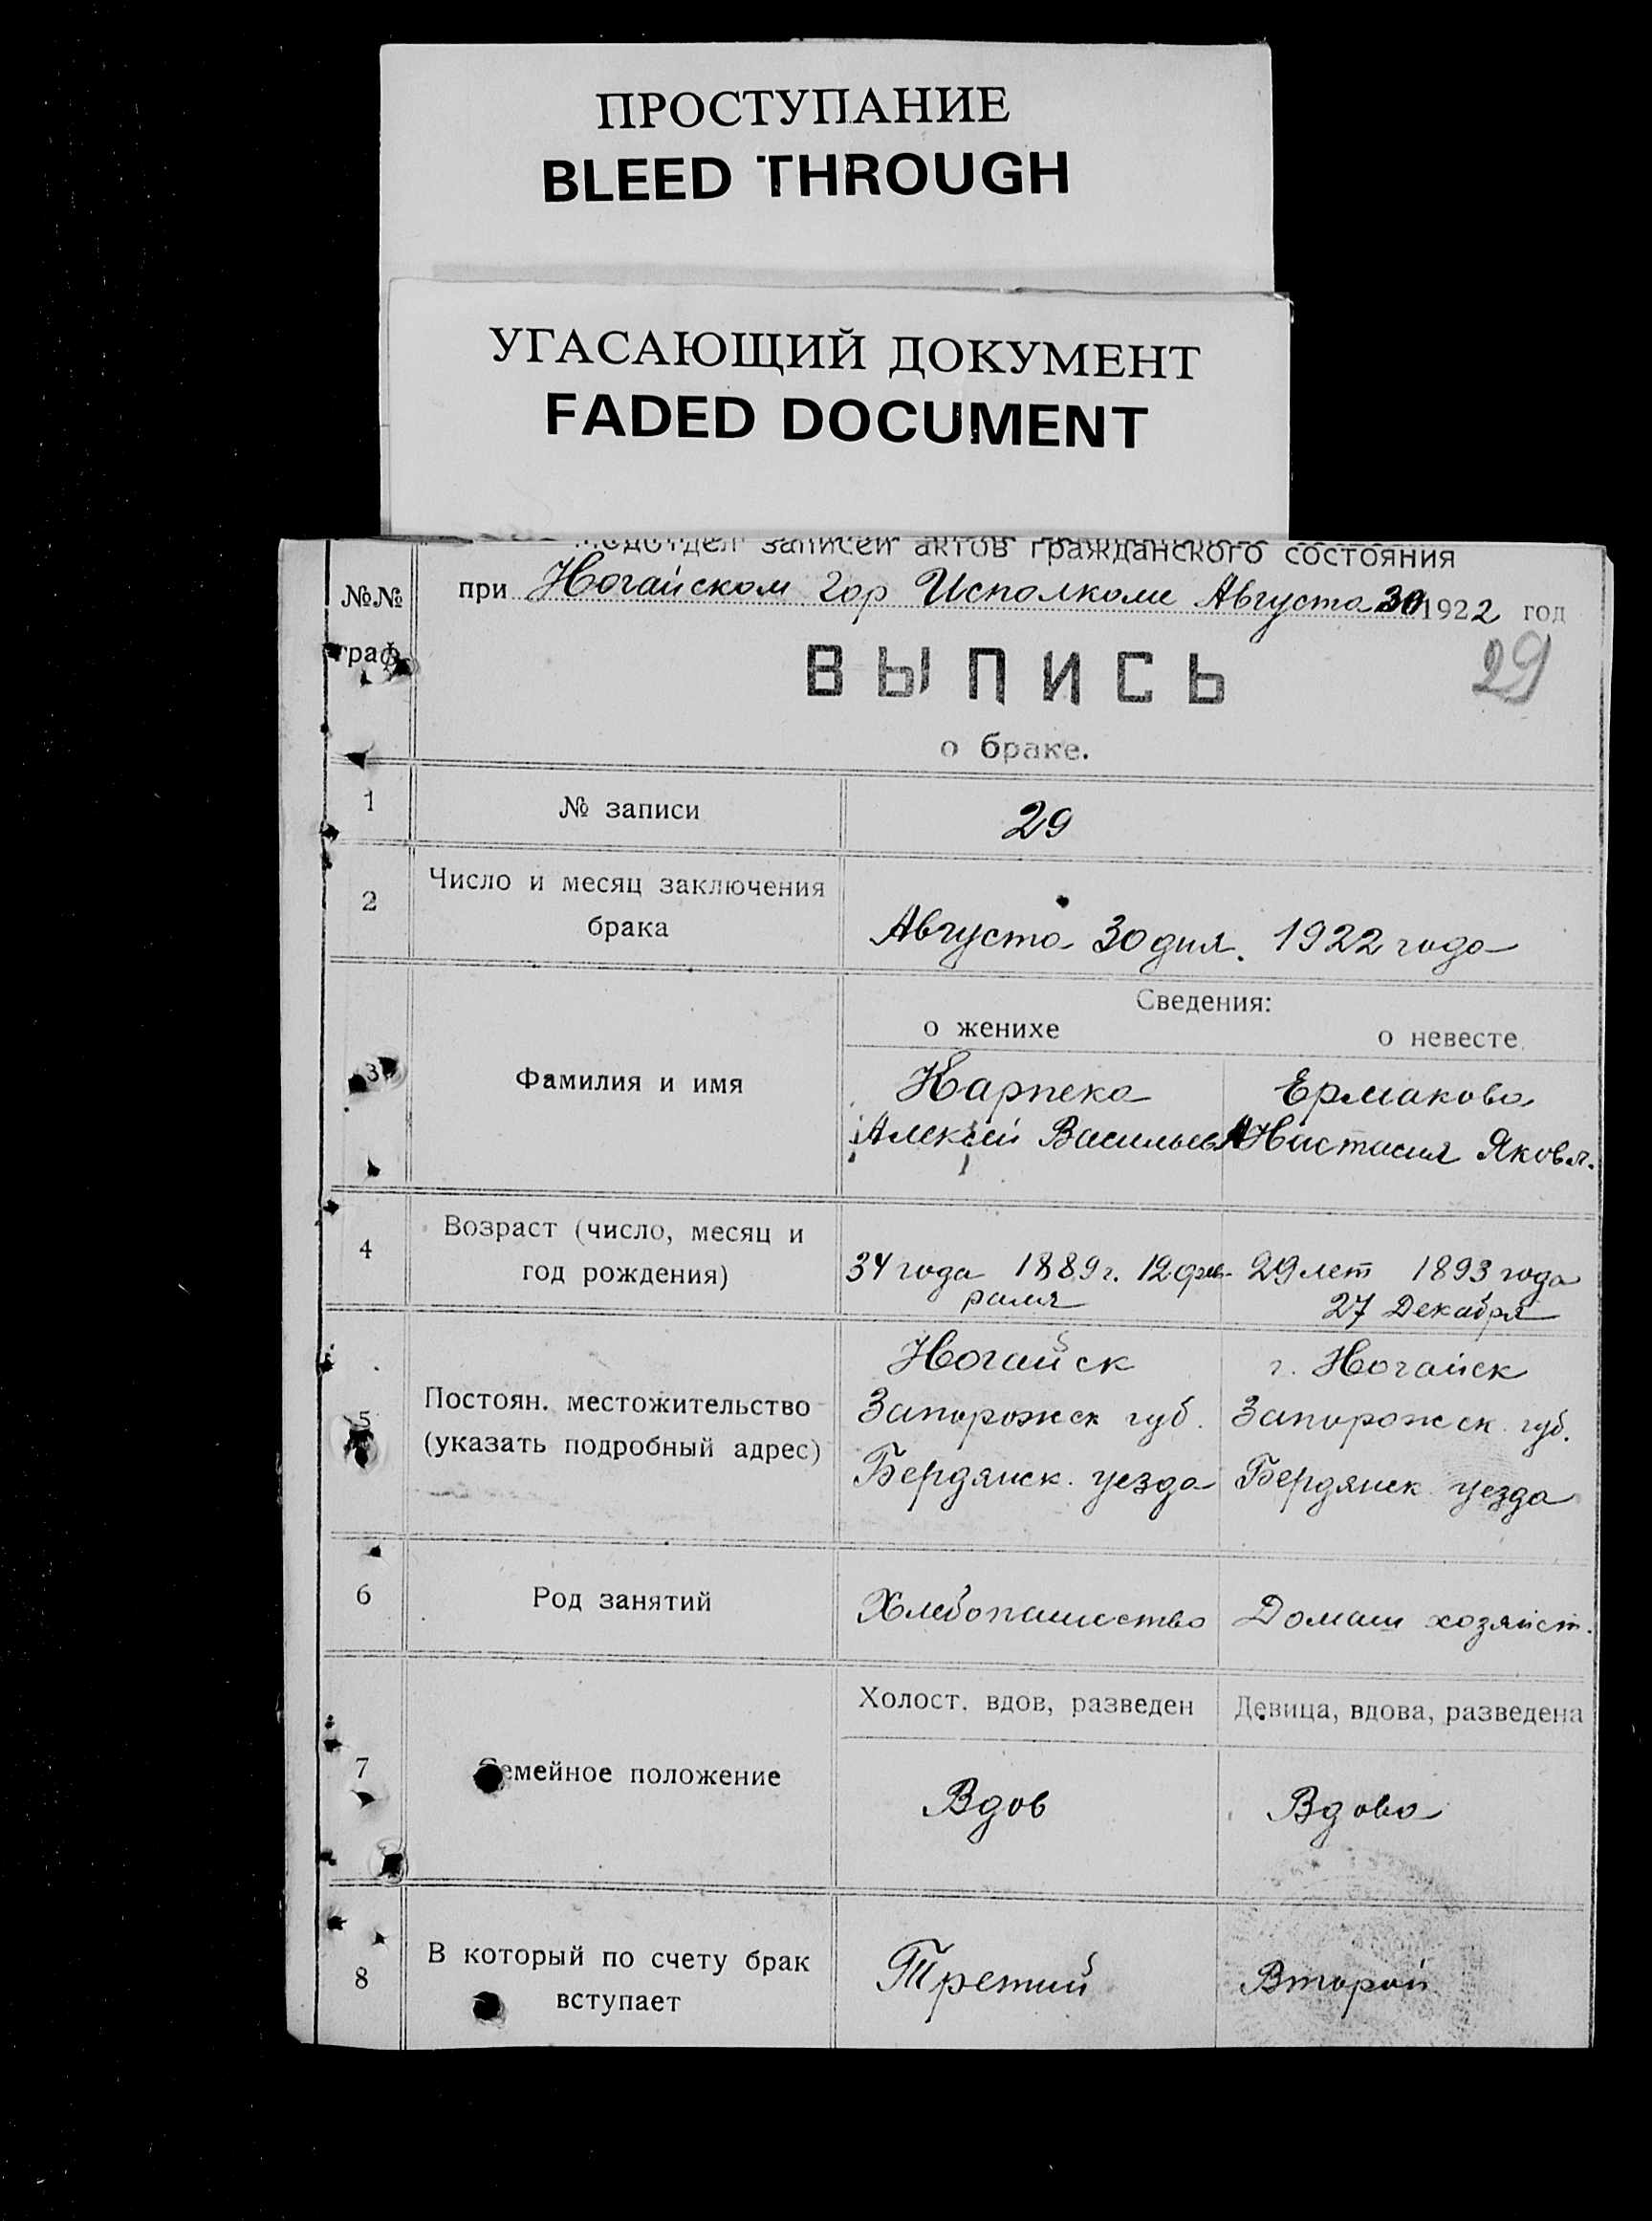 ПРОСТУПАНИЕ
BLEED THROUGH
УГАСАЮЩИЙ ДОКУМЕНТ
FADED DOCUMENT
записей актов гражданского состояния
№№
граф
при Ногайском Гор Исполкоме Августа 30 1922 год
29
ВЫПИСЬ
о браке.
1
№ записи
29
2
Число и месяц заключения
брака
Августа 30 дня. 1922 года
Сведения:
о женихе
о невесте
3
Фамилия и имя
Карпека
Алексей Васильев
Ермакова
Анастасия Яковл.
4
Возраст (число, месяц и
год рождения)
34 года 1889 г. 12 фев
раля
29 лет 1893 года
27 Декабря
5
Постоян. местожительство
(указать подробный адрес)
Ногайск
Запорожск губ.
Бердянск. уезда
г. Ногайск
Запорожск. губ.
Бердянск уезда
6
Род занятий
Хлебопашество
Домаш хозяйст.
7
Семейное положение
Холост, вдов, разведен
Девица, вдова, разведена
Вдов
Вдова
8
В который по счету брак
вступает
Третий
Второй